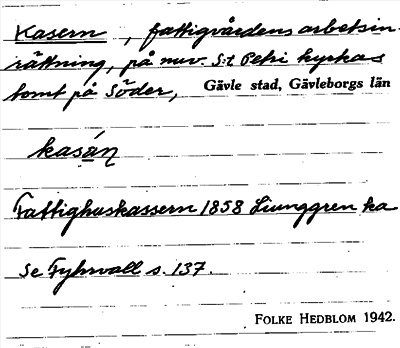 Kasern , fattigvårdens arbetsin-
rättning, på nuv. S:t Petri kyrkas
tomt på Söder, Gävle stad, Gävleborgs län
kasán
Fattighuskassern 1858 Ljunggren ka
Se Fyhrvall s. 137.
FOLKE HEDBLOM 1942.